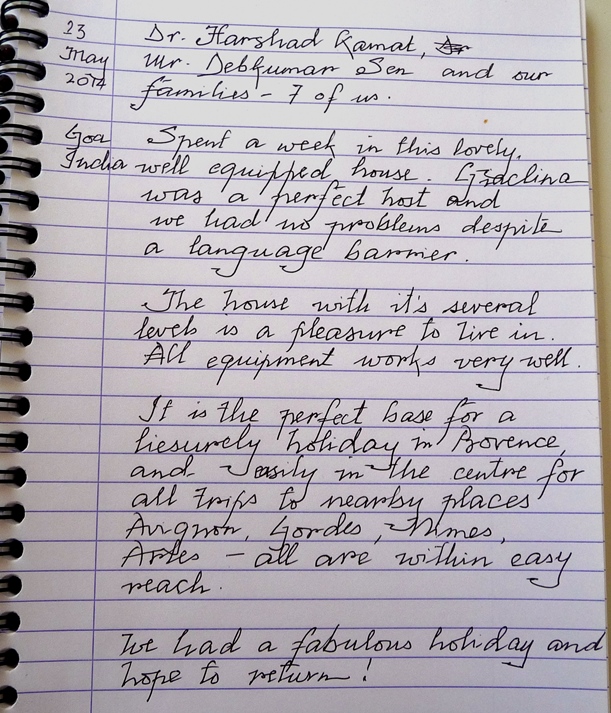 23 Dr. Harshad Kamat,
May Mr. Debkumar Sen and our
2014 families - 7 of us.
Goa Spent a week in this lovely,
India well equipped house. Graclina
was a perfect host and
we had no problems despite
a language barrier.
The house with it's several
levels is a pleasure to live in.
All equipment works very well.
It is the perfect base for a
liesurely holiday in Provence,
and easily in the centre for
all trips to nearby places
Avignon, Gordes, Nimes,
Arles - all are within easy
reach.
We had a fabulous holiday and
hope to return!